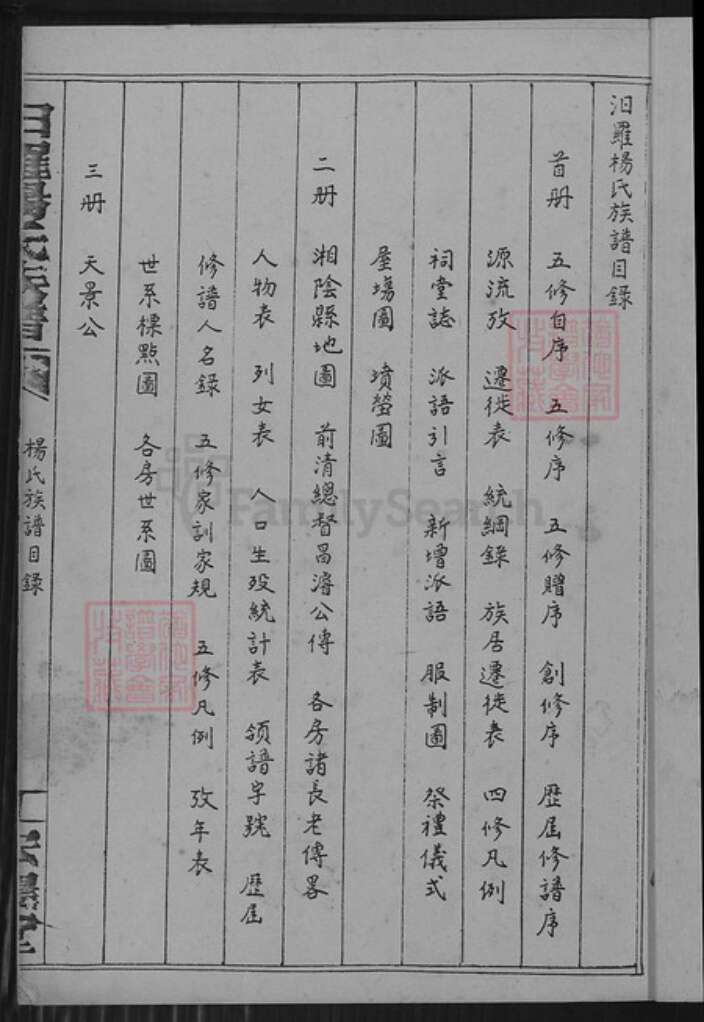 汨羅楊氏族譜目錄
首册 五修自序 五修序 五修贈序 創修序 歷屆修譜序
源流攷 遷徙表 統綱錄 族居遷徙表 四修凡例
祠堂誌 派語引言 新增派語 服制圖 祭禮儀式
屋塲圖 墳塋圖
二册 湘陰縣地圖 前清總督昌濬公傳 各房諸長老傳畧
人物表 列女表 人口生殁統計表 領譜字號 歷屆
修譜人名錄 五修家訓家規 五修凡例 攷年表
世系標點圖 各房世系圖
三册 天景公
汨羅楊氏族譜
楊氏族譜目錄
FamilySearch